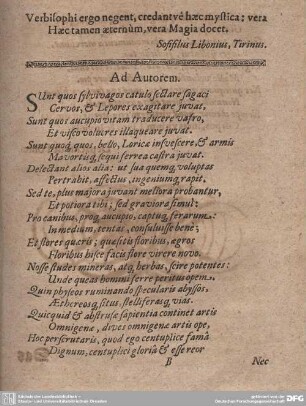 Verbisophi ergo negent, credantvé hæc mystica; vera
Hæc tamen æternùm, vera Magia docet.
Sofistus Libonius, Tirinus.
Ad Autorem.
SUnt quos sylvivagos catulo sectare sagaci
Cervos, & Lepores exagitare juvat.
Sunt quos aucupio vitam traducere vafro,
Et visco volucres illaqueare juvat.
Sunt quoq́ quos, bello, Loricæ insvescere, & armis
Mavortiis, sequi ferrea castra juvat.
Delectant alios alia: ut sua quemq́ voluptas
Pertrahit, affectus, ingeniumq́ rapit.
Sed te, plus majora juvant meliora probantur,
Et potiora tibi; sed graviora simul:
Pro canibus, proq́ aucupio, captuq́ ferarum:
In medium, tentas, consuluisse bene;
Et flores quæris; quæsitis floribus, agros
Floribus hisce facis flore virere novo.
Nosse studes mineras, atq́ herbas, scire potentes:
Unde queas homini ferre peritus opem.
Quin physeos ruminando speculariis abyssos,
Æthereosq́ situs, stelliferasq́ vias.
Quicquid & abstrusæ sapientia continet artis
Omnigenæ, dives omnigenæ artis ope,
Hoc perscrutaris, quod ego centuplice famâ
Dignum, centuplici gloriâ & esse reor
B
Nec